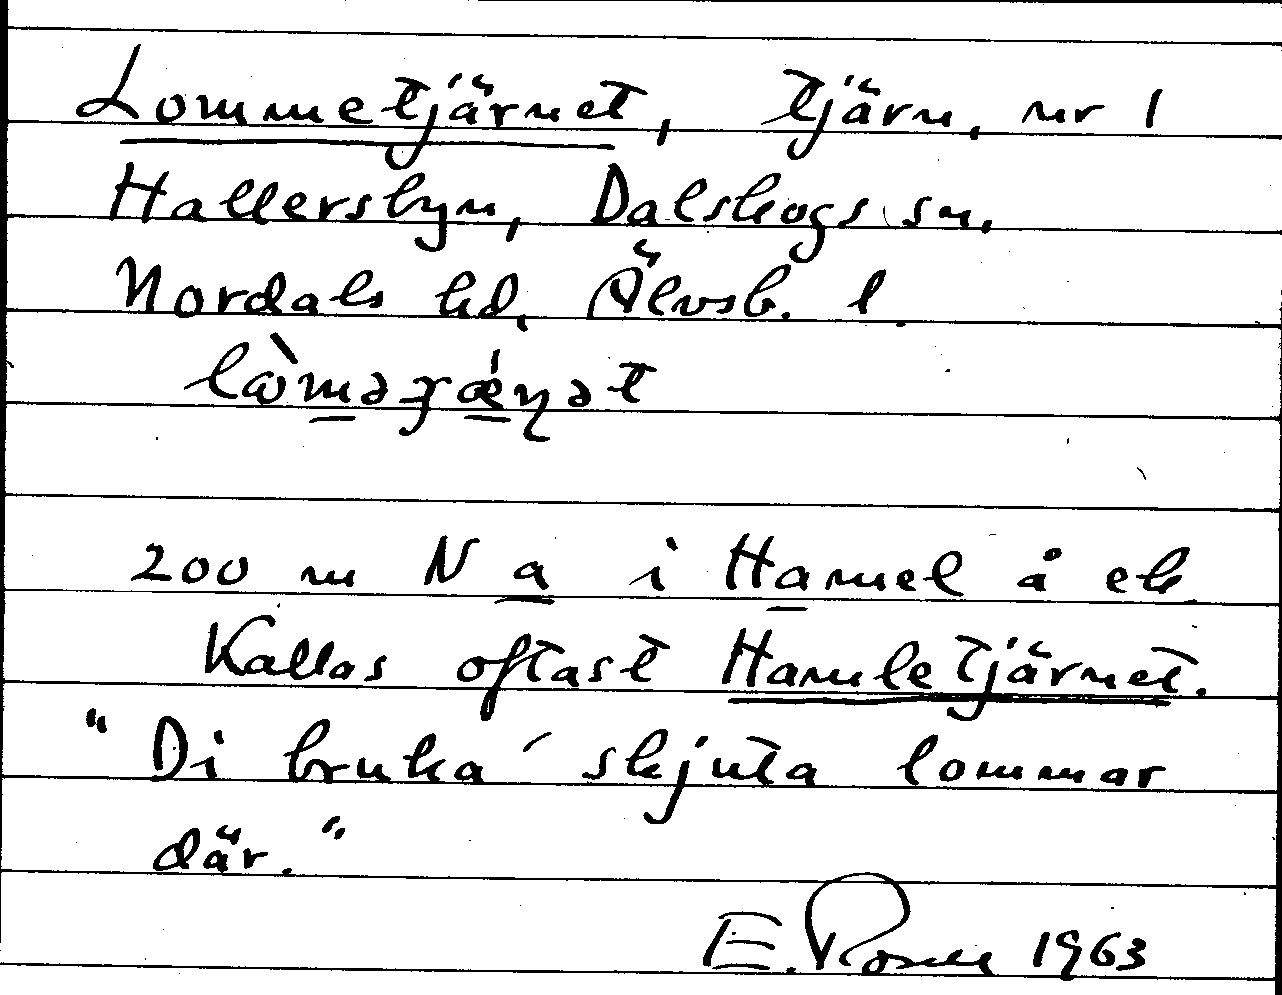 Lommetjärnet, tjärn, nr 1
Hallersbyn, Dalskogs sn,
Nordals hd, Älvsb. l.
200 m N a i Hamel å ek
Kallas oftast Hamletjärnet.
"Di bruka' skjuta lommar
där."
E. 1963